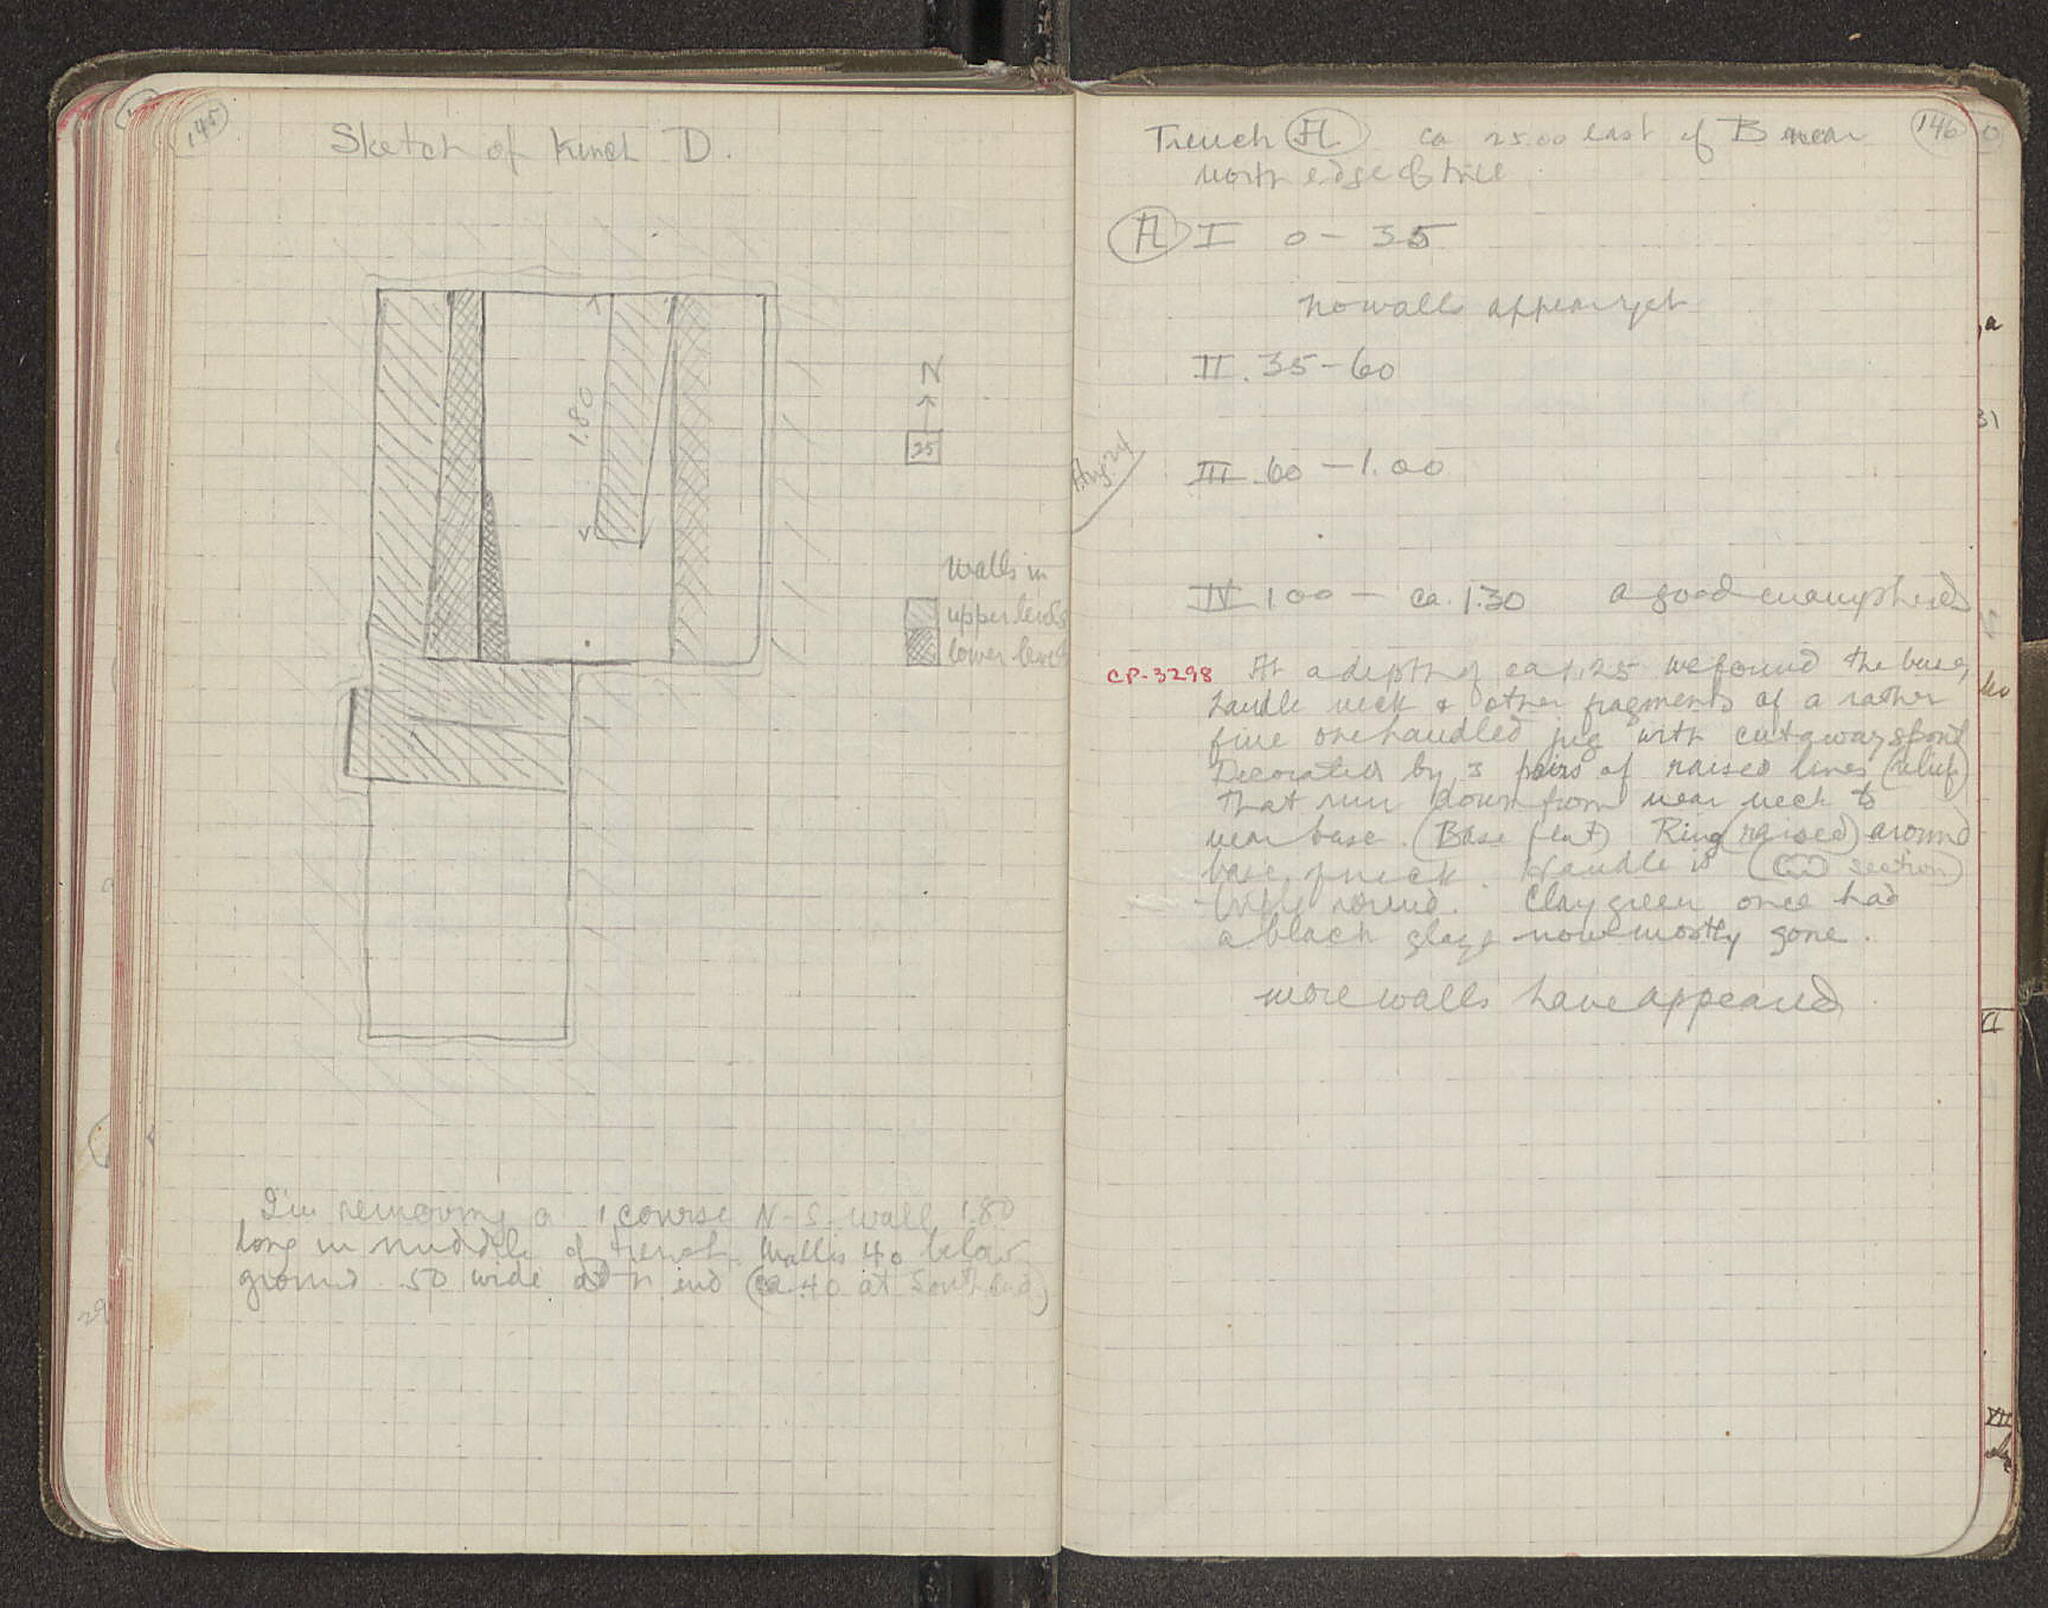 145
Sketch of trench D.
1.80
N
25
Walls in
upper levels
lower levels
I'm removing a 1 course N-S. wall, 1.80
long in middle of trench. Wall is 40 below
ground .50 wide at N end (ca .40 at South end)
146
Trench ca 25.00 east of B near
north edge of hill
I 0 - 35
no walls appear yet
II. 35 - 60
Aug 24
III .60 - 1.00
IV 1 00 - ca. 1.30 a good many sherds
CP-3298 At a depth of ca 1.25 we found the base,
handle neck & other fragments of a rather
fine one handled jug with cutaway spout
Decorated by 3 pairs of raised lines (relief)
that run down from near neck to
near base. (Base flat) Ring (raised) around
base of neck. Handle is ( section)
triple round. Clay green once had
a black glaze now mostly gone.
more walls have appeared